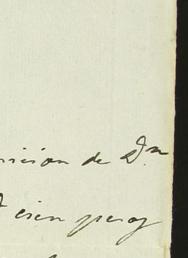 nision de Dn
cien pesos